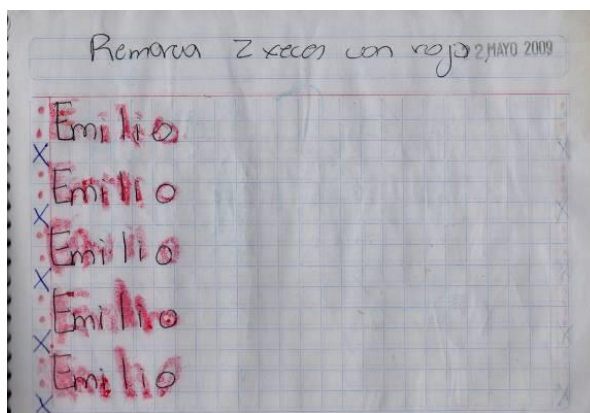 Remarca 2 veces con rojo 2 MAYO 2009
Emilio
Emilio
Emilio
Emilio
Emilio